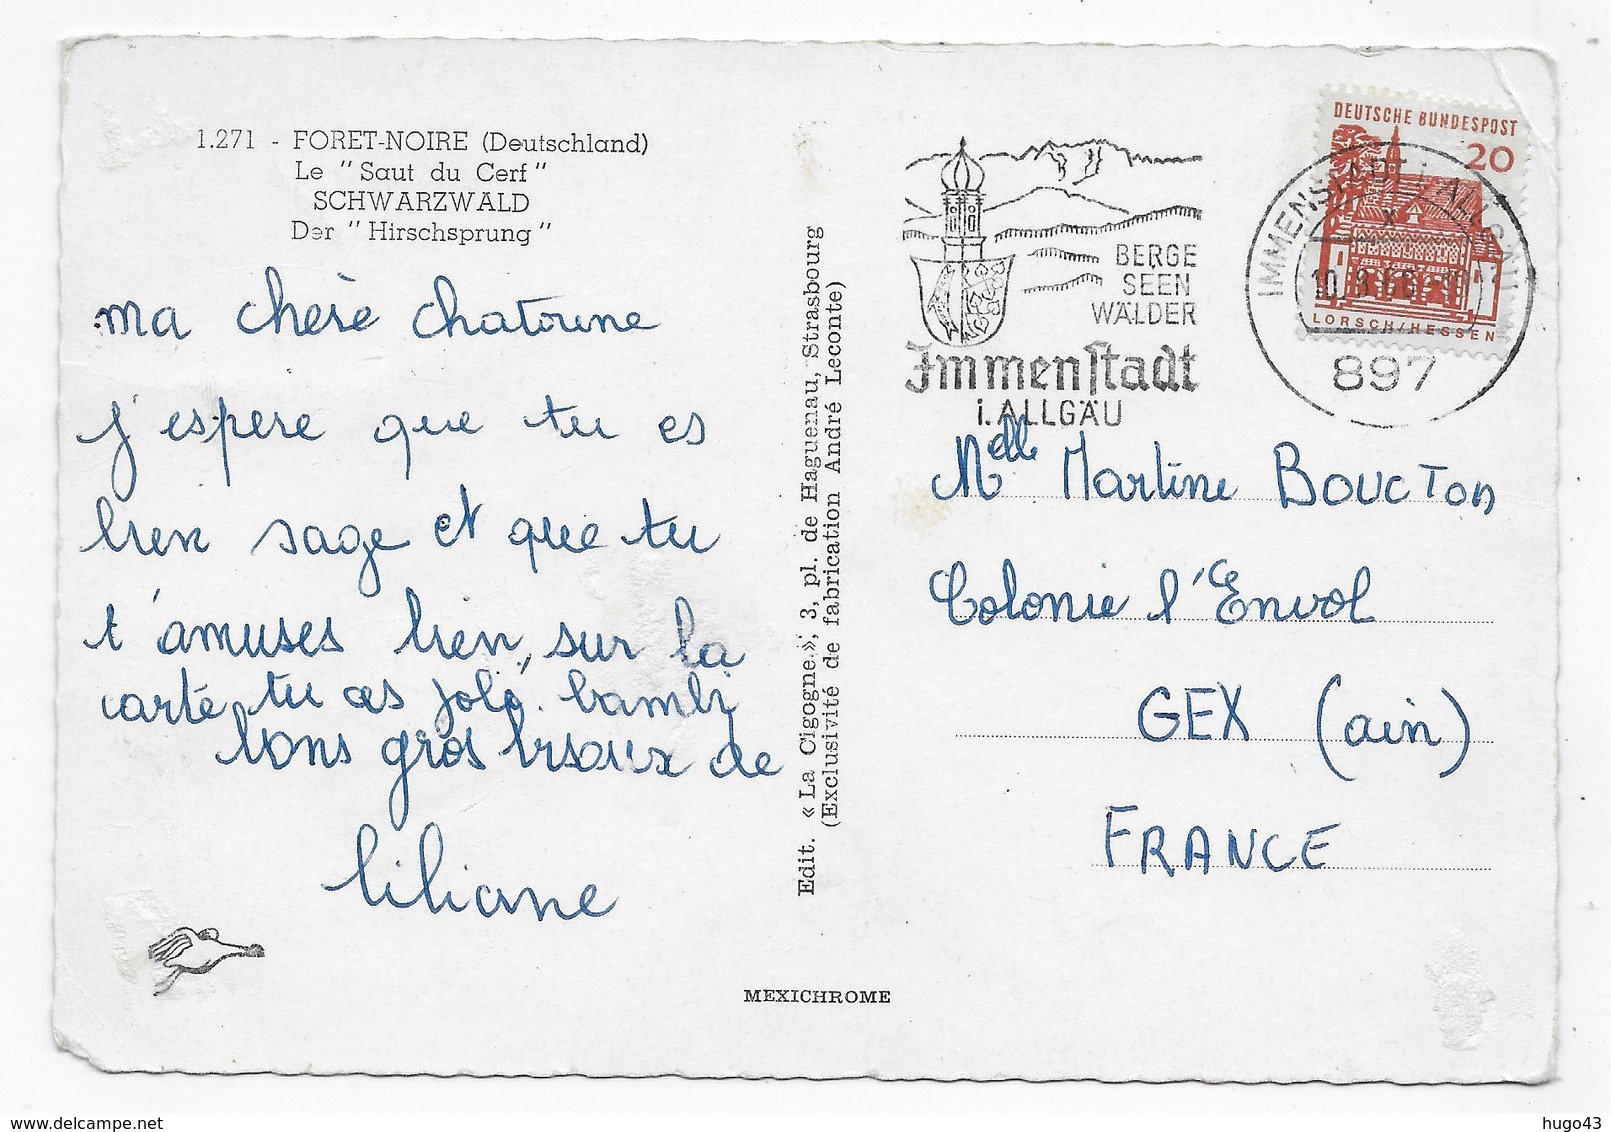 1.271 - FORET-NOIRE (Deutschland)
Le "Saut du Cerf"
SCHWARZWALD
Der "Hirschsprung"
ma chère chatoune
j'espere que tu es
bien sage et que tu
t'amuses bien, sur la
carte, tu as joli bambi
bons gros bisoux de
liliane
Edit. « La Cigogne », 3, pl. de Haguenau, Strasbourg
(Exclusivité de fabrication André Leconte)
MEXICHROME
BERGE
SEEN
WÄLDER
Immenstadt
i. ALLGÄU
DEUTSCHE BUNDESPOST
20
LORSCH/HESSEN
IMMENSTADT i. ALLGÄU
897
Melle Martine BOUCTON
Colonie l'Envol
GEX (ain)
FRANCE
hugo43